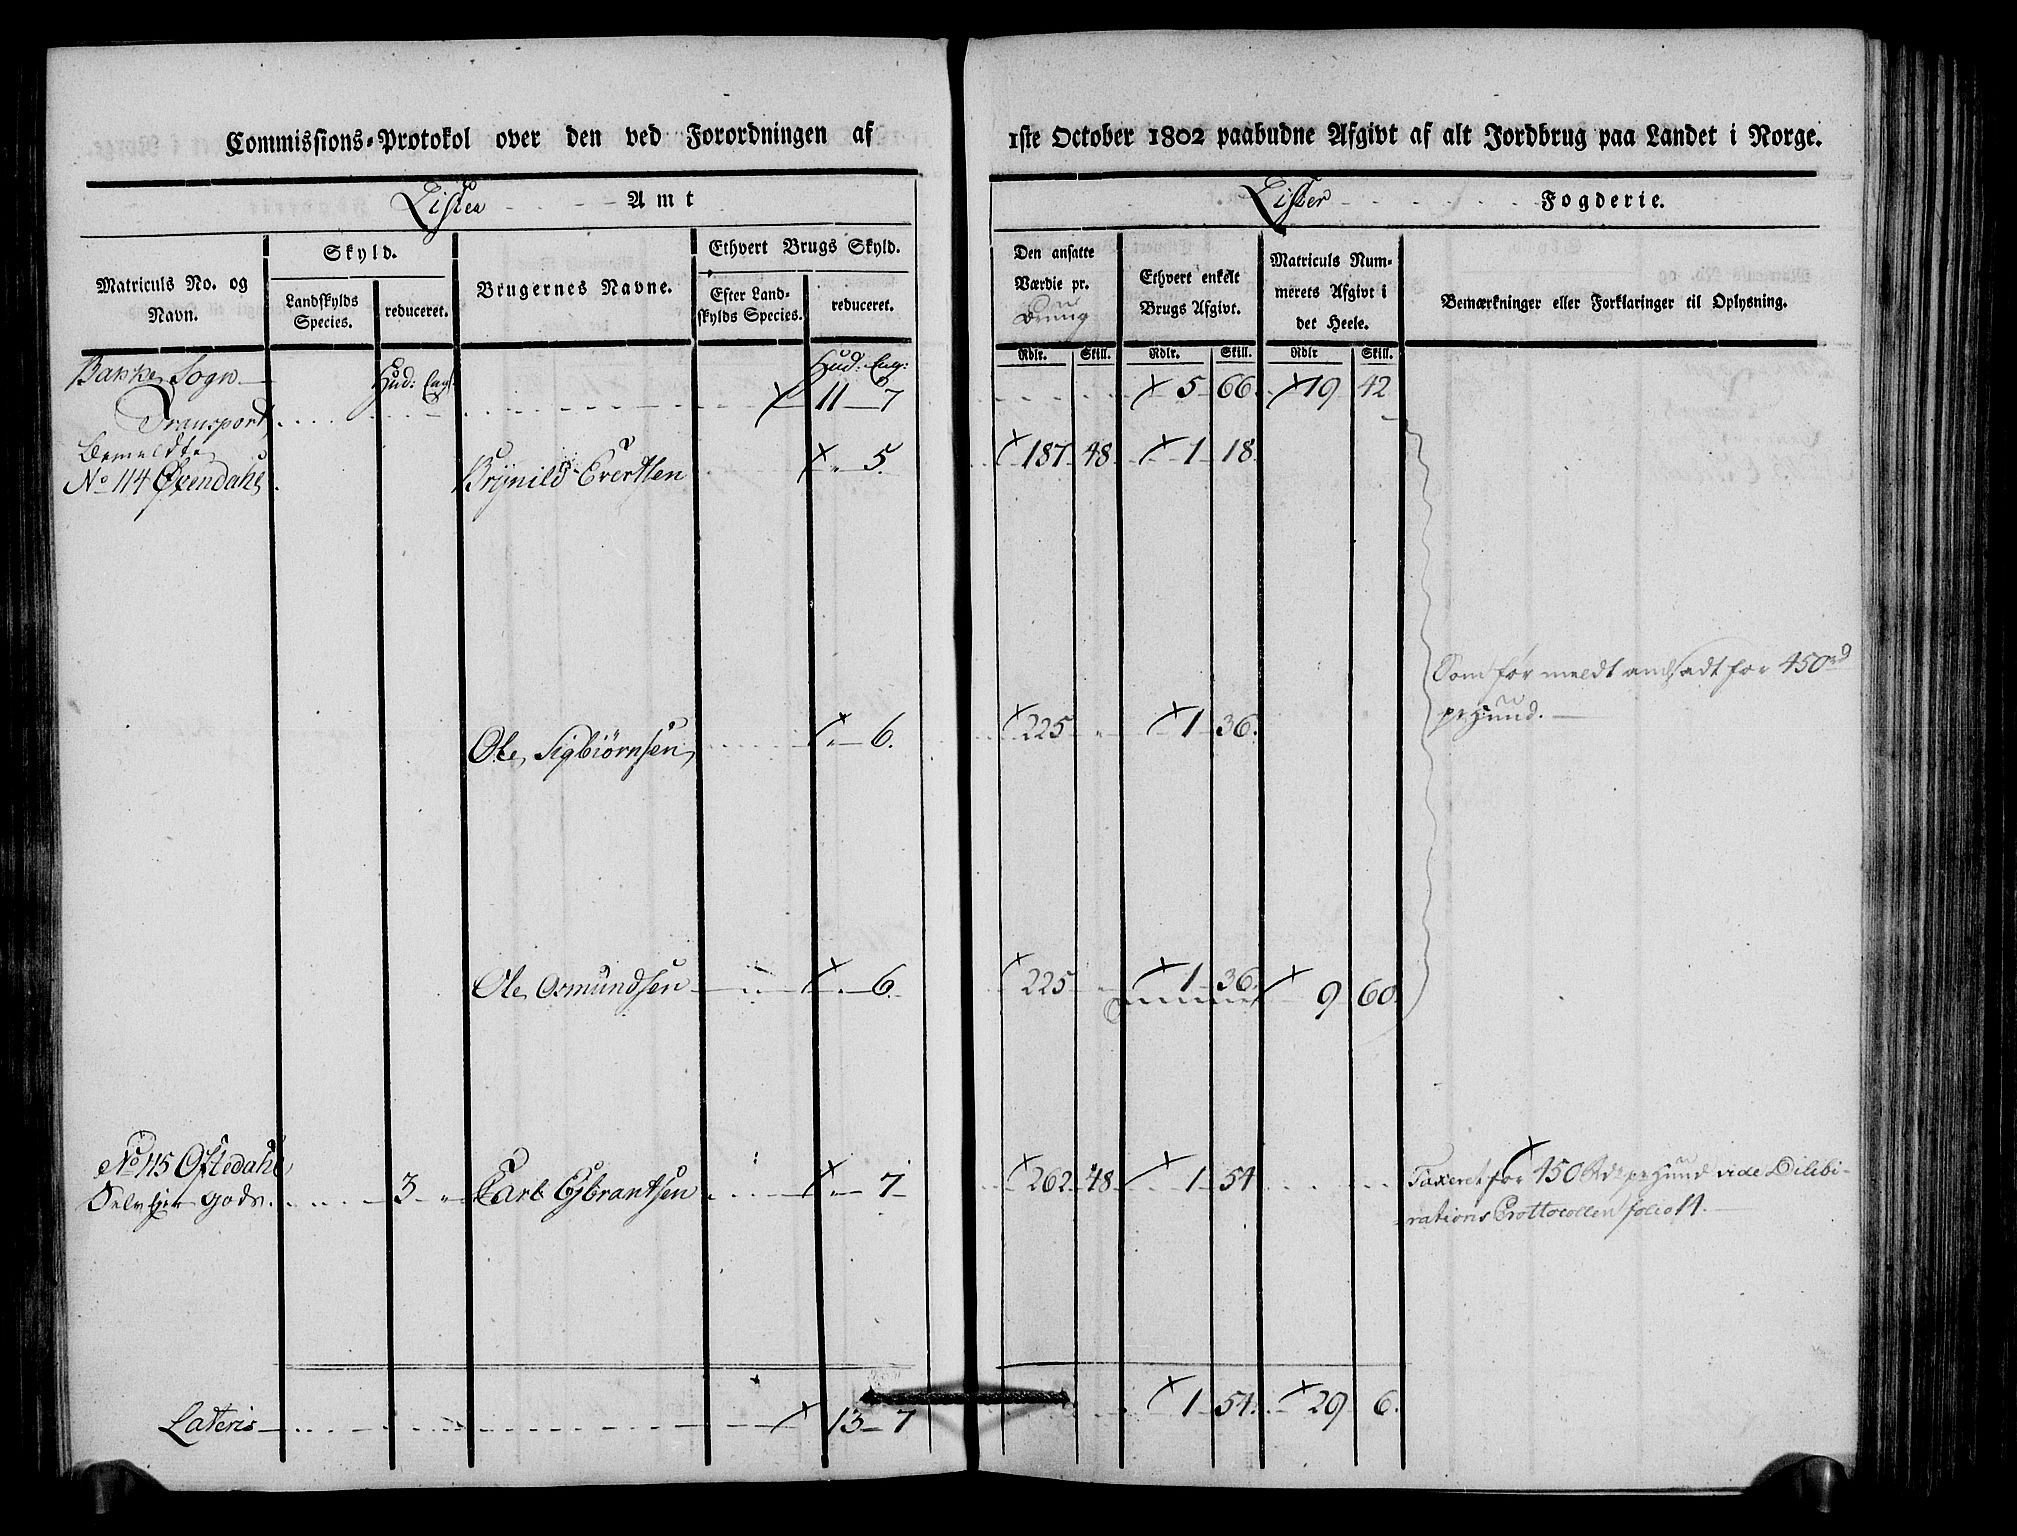 Commissions-Protokol over den ved Forordningen af
Lister Amt
Matriculs No. og Navn.
Skyld.
Landskylds Species.
reduceret.
Brugernes Navne.
Ethvert Brugs Skyld.
Efter Landskylds Species.
reduceret.
Bakke Sogn Hud: Eng: Hud: Eng:
Transport 11 7
bemeldte
No 114 Øvendahl Brynild Evertsen " 5.
Ole Sigbiørnsen " 6.
Ole Osmundsen " 6.
No 115 Øftedahl
Selv Eier Gods. 3 " Carl Esbrantsen " 7
Lateris 13 7
1ste October 1802 paabudne Afgivt af alt Jordbrug paa Landet i Norge.
Lister Fogderie.
Den ansatte Værdie pr.
Ethvert enkelt Brugs Afgivt.
Matriculs Nummerets Afgivt i det Heele.
Bemærkninger eller Forklaringer til Oplysning.
Rdlr. Skill. Rdlr. Skill. Rdlr Skill.
5 66 19 42
187 48 1 18
Som før meldt andsadt for 450 rd
pr Hund.
225 " 1 36.
225 " 1 36. 9 60.
262 48 1 54 Taxeret for 450 Rd pr Hund vide Dilibi-
rations Prottocollen folio 14.
1 54. 29 6.